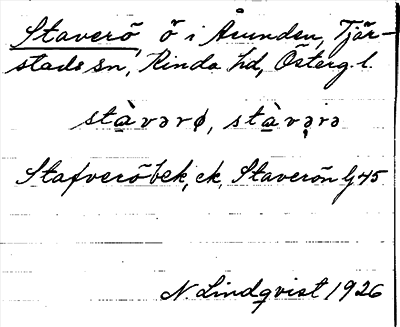 Staverö ö i Åsunden, Tjär-
stads sn, Kinda hd, Östergl.
stàvərø, stàvərə
Stafveröbek, ek, Staverön G45
N. Lindqvist 1926